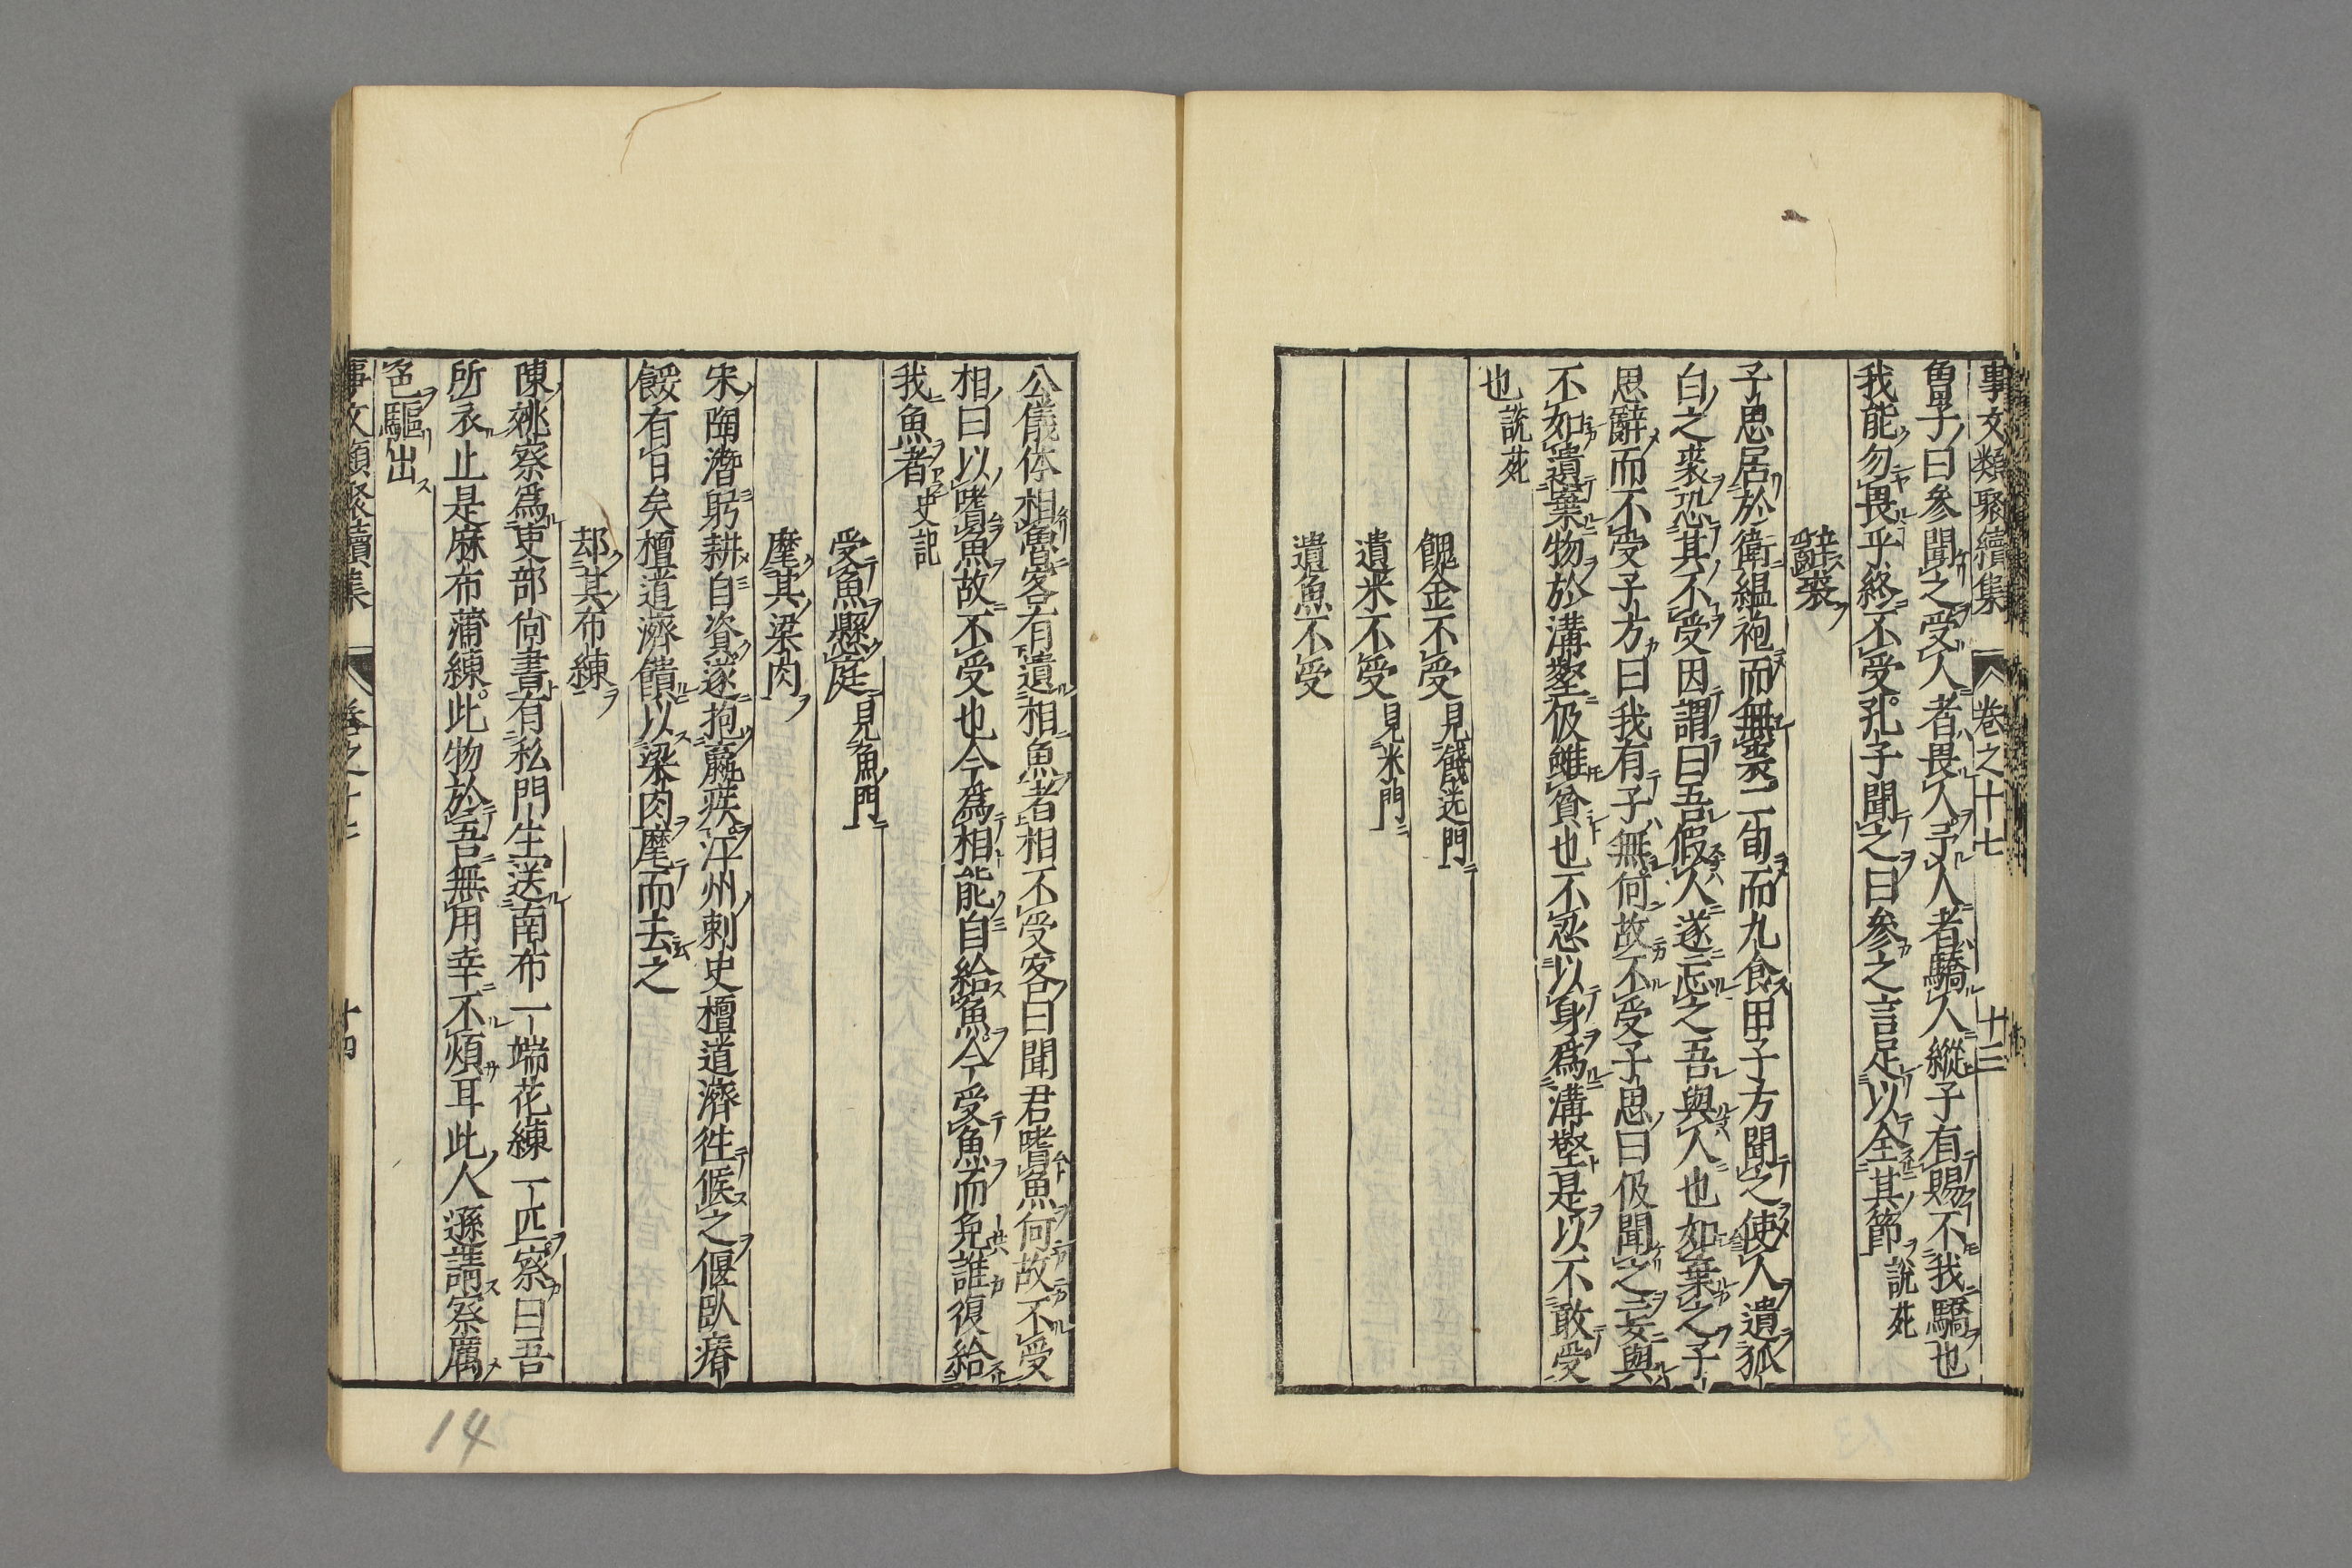 事文類聚續集 卷之十七 十三
魯子曰參聞之受人者畏人予人者驕人縱子有賜不我驕也
我能勿畏乎終不受孔子聞之曰參之言足以全其節說苑
辭裘
子思居於衛緼袍而無裏二旬而九食田子方聞之使人遺狐
白之裘恐其不受因謂曰吾假人遂忘之吾與人也如棄之子
思辭而不受子方曰我有子無何故不受子思曰伋聞之妄與
不如遺棄物於溝壑伋雖貧也不忍以身爲溝壑是以不敢受
也說苑
餽金不受見餞送門
遺米不受見米門
遺魚不受
公儀休相魯客有遺相魚者相不受客曰聞君嗜魚何故不受
相曰以嗜魚故不受也今爲相能自給魚今受魚而免誰復給
我魚者史記
受魚懸庭見魚門
麾其梁肉
宋陶潛躬耕自資遂抱羸疾江州刺史檀道濟徃候之偃臥瘠
餒有日矣檀道濟饋以梁肉麾而去之
却其布練
陳姚察爲吏部尙書有私門生送南布一端花練一匹察曰吾
所衣止是麻布蒲練此物於吾無用幸不煩耳此人遜請察厲
色驅出
事文類聚續集 卷之十七 十四
14